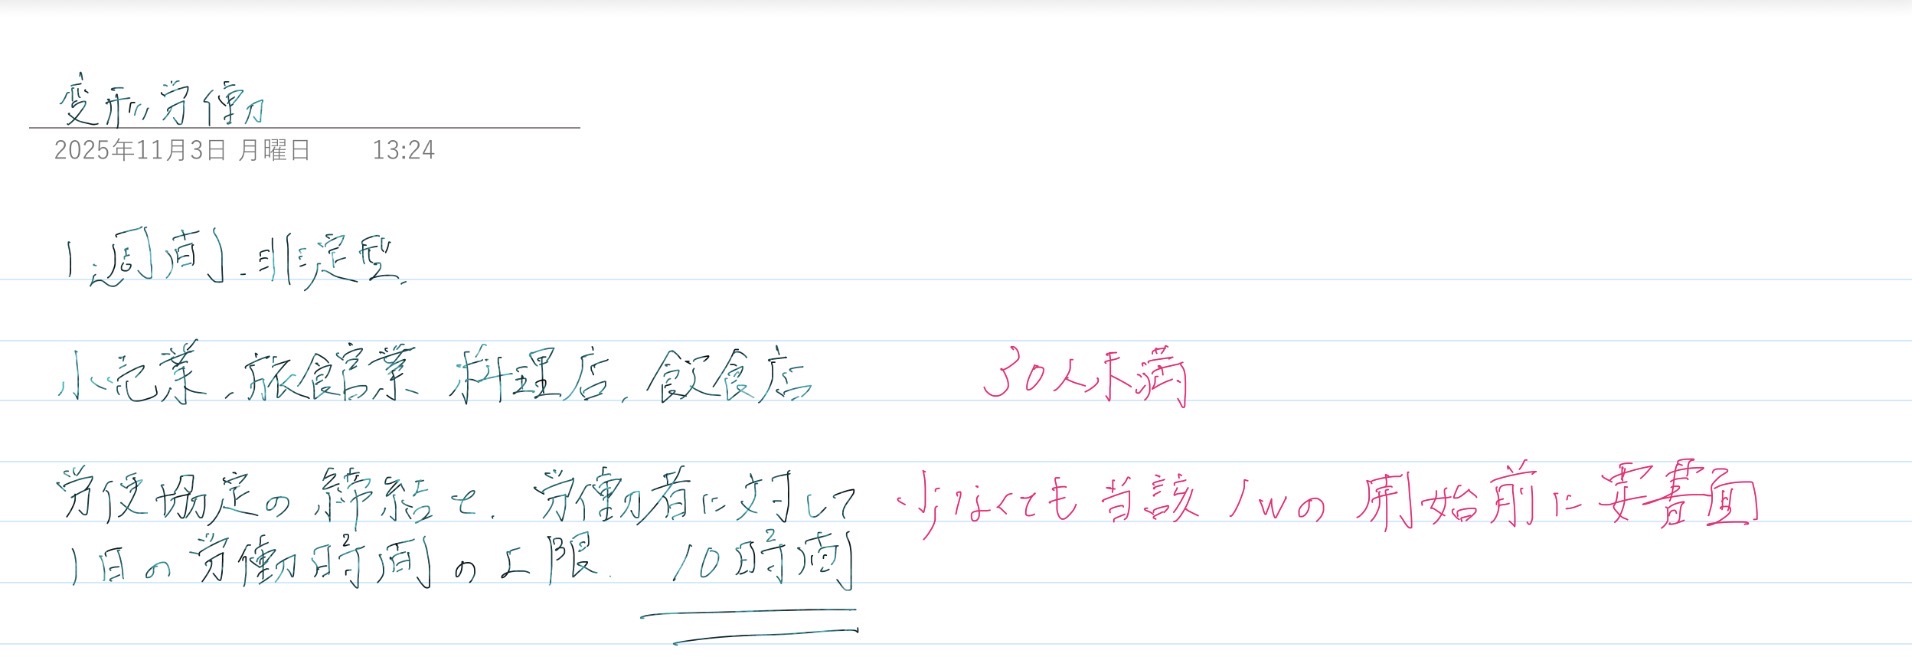 変形労働
2025年11月3日 月曜日 13:24
1週間.非定型.
小売業、旅館営業 料理店、飲食店 30人未満
労使協定の締結と、労働者に対して 少なくても当該1wの開始前に要書面
1日の労働時間の上限. 10時間